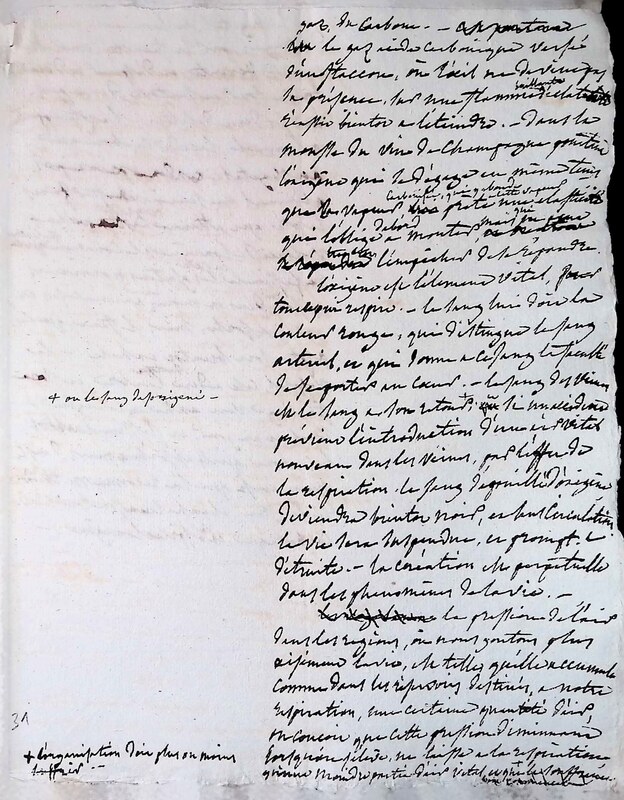 gaz, du carbone. —
le gaz acide carbonique versé
d'un flaccon, où l'œil ne devine pas
sa présence, sur une flamme
brillante
réussit bientot a l'eteindre. — dans la
mousse du vin de Champagne
l'oxigène qui se dégage en même tems
que les vapeurs prete une elasticité
qui l'obligé a monter
l'empêcher de se répandre
l'oxigène est l'élement vital,
tout ce qui respire. — le sang lui doit la
couleur rouge, qui distingue le sang
arteriel, et qui donne a ce sang la faculté
de se porter au cœur. — le sang des veines
+ ou le sang desoxigené —
est le sang a son retour, + si un accident
prévient l'introduction d'un air vital
nouveau dans les veines, par l'effet de
la respiration, le sang dépouillé d'oxigène
deviendra bientot noir, et sans circulation
la vie sera suspendue, et promptt
détruite. — la création est perpetuelle
dans les phenomènes de la vie. —
la pression de l'air
dans les regions, où nous goutons plus
aisément la vie, est telle, qu'elle accumule
comme dans les réservoirs destinés, a notre
respiration, une certaine quantité d'air
on conçoit que cette pression diminuée
lorsqu'on s'élève, ne laisse a la respiration
qu'une moindre portion d'air vital, et que
31
+ l'organisation doit plus ou moins
souffrir